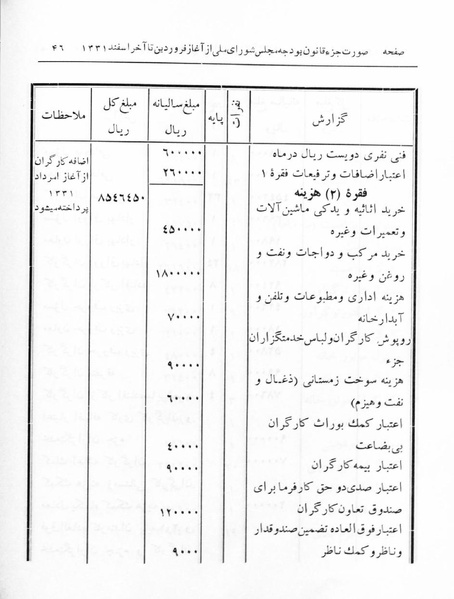 صفحه صورت جزء قانون بودجه مجلس شورای ملی از آغاز فروردین تا آخر اسفند ۱۳۳۱ ۴۶
گزارش نفرات پایه مبلغ سالیانه ریال مبلغ کل ریال ملاحظات
فنی نفری دویست ریال درماه ۶۰۰۰۰۰
اعتبار اضافات و ترفیعات فقرهٔ ۱ ۲۶۰۰۰۰
۸۵۴۶۴۵۰
اضافه کارگران
از آغاز امرداد
۱۳۳۱
پرداخته میشود
فقرهٔ (۲) هزینه
خرید اثاثیه و یدکی ماشین آلات
و تعمیرات وغیره ۴۵۰۰۰۰
خرید مرکب و دواجات و نفت و
روغن وغیره ۱۸۰۰۰۰۰
هزینه اداری و مطبوعات و تلفن و
آبدارخانه ۷۰۰۰۰
روپوش کارگران و لباس خدمتگزاران
جزء ۹۰۰۰۰
هزینه سوخت زمستانی (ذغال و
نفت و هیزم) ۶۰۰۰۰
اعتبار کمك بوراث کارگران
بی بضاعت ۴۰۰۰۰
اعتبار بیمه کارگران ۹۰۰۰۰
اعتبار صدی دو حق کارفرما برای
صندوق تعاون کارگران ۱۲۰۰۰۰
اعتبار فوق العاده تضمین صندوقدار
و ناظر و کمك ناظر ۹۰۰۰